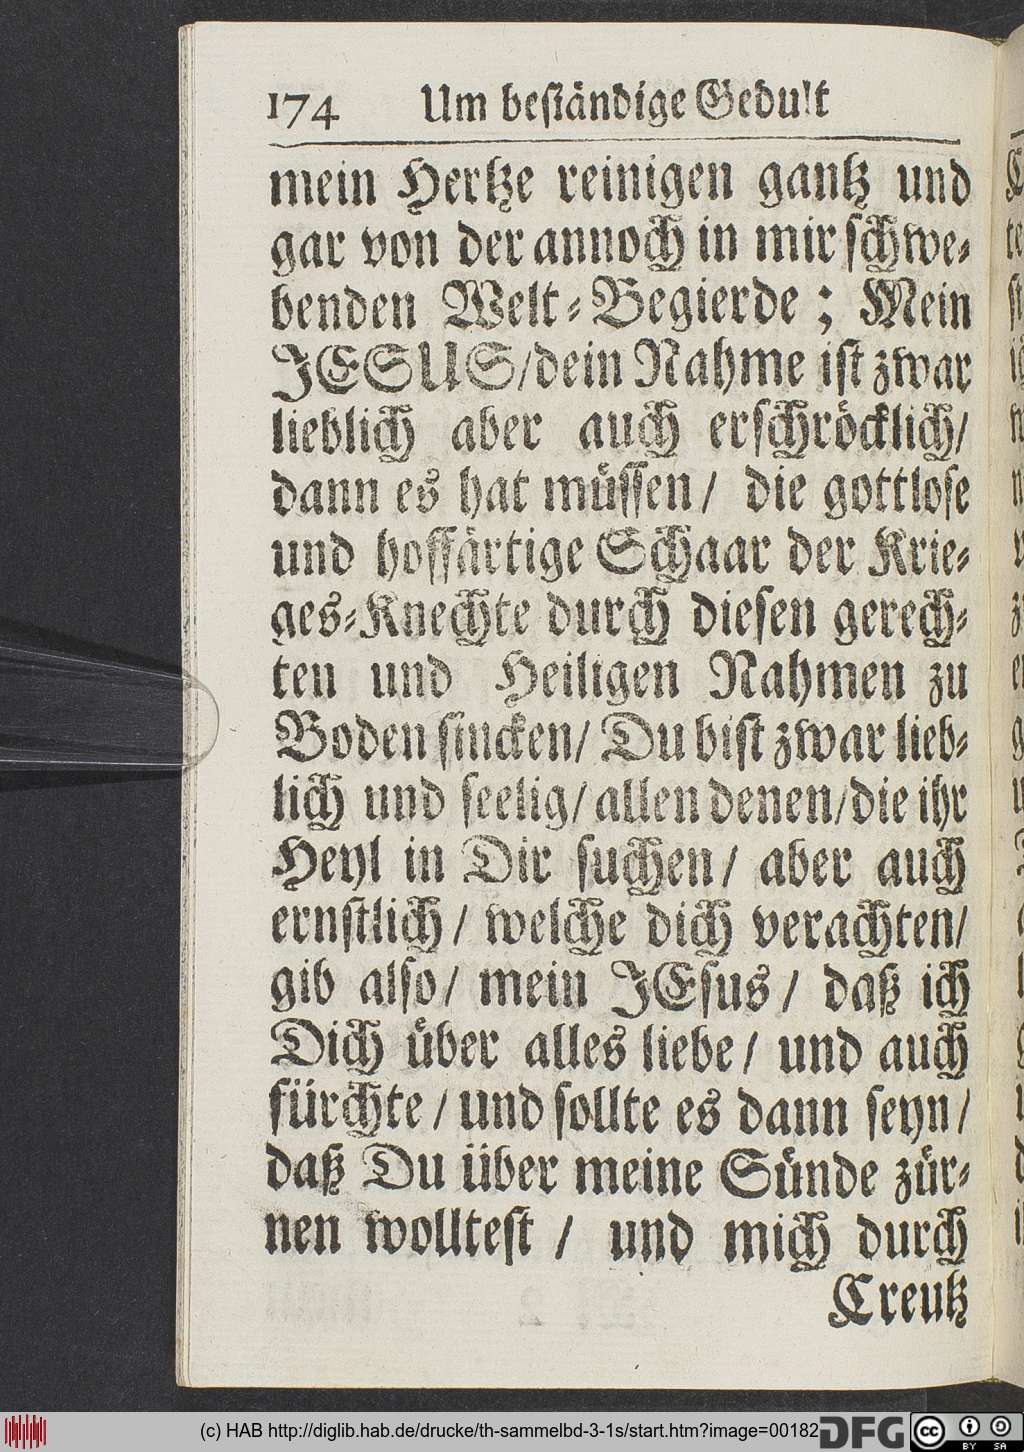 174 Um beständige Gedult
mein Hertze reinigen gantz und
gar von der annoch in mir schwe-
benden Welt-Begierde; Mein
JESUS/dein Nahme ist zwar
lieblich aber auch erschröcklich/
dann es hat müssen/ die gottlose
und hoffärtige Schaar der Krie-
ges-Knechte durch diesen gerech-
ten und Heiligen Nahmen zu
Boden sincken/ Du bist zwar lieb-
lich und seelig/ allen denen/die ihr
Heyl in Dir suchen/ aber auch
ernstlich/ welche dich verachten/
gib also/ mein JEsus/ daß ich
Dich über alles liebe/ und auch
fürchte/ und sollte es dann seyn/
daß Du über meine Sünde zür-
nen wolltest / und mich durch
Creutz
(c) HAB http://diglib.hab.de/drucke/th-sammelbd-3-1s/start.htm?image=00182
DFG
cc
BY SA